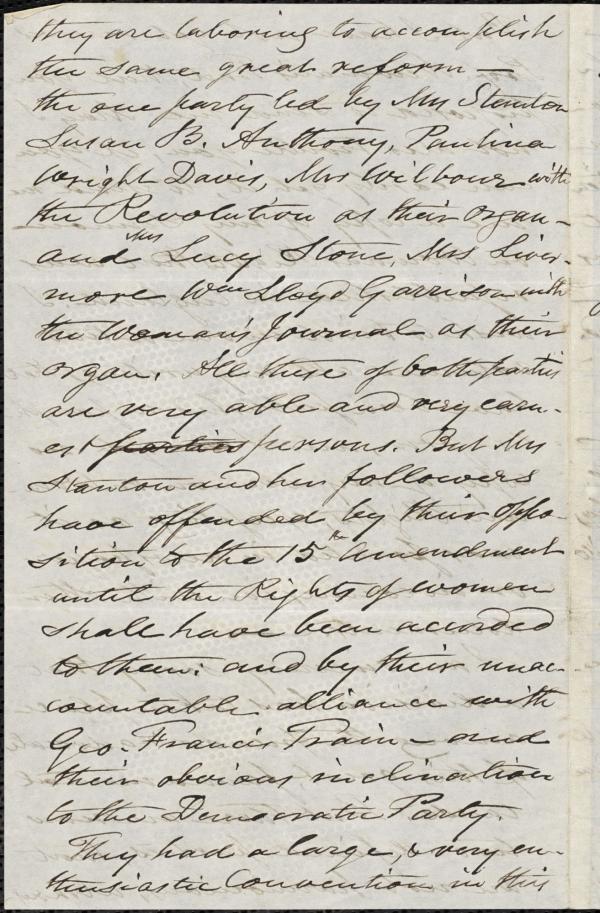 they are laboring to accomplish
the same great reform —
the one party led by Mrs Stanton
Susan B. Anthony, Paulina
Wright Davis, Mrs Wilbour with
the Revolution as their organ —
and Mrs Lucy Stone, Mrs Liver-
more Wm Lloyd Garrison with
the Woman's Journal as their
organ. All these of both parties
are very able and very earn-
est parties persons. But Mrs
Stanton and her followers
have offended by their oppo-
sition to the 15th Amendment
until the Rights of women
shall have been accorded
to them: and by their unac-
countable alliance with
Geo. Francis Train — and
their obvious inclination
to the Democratic Party.
They had a large, & very en-
thusiastic Convention in this